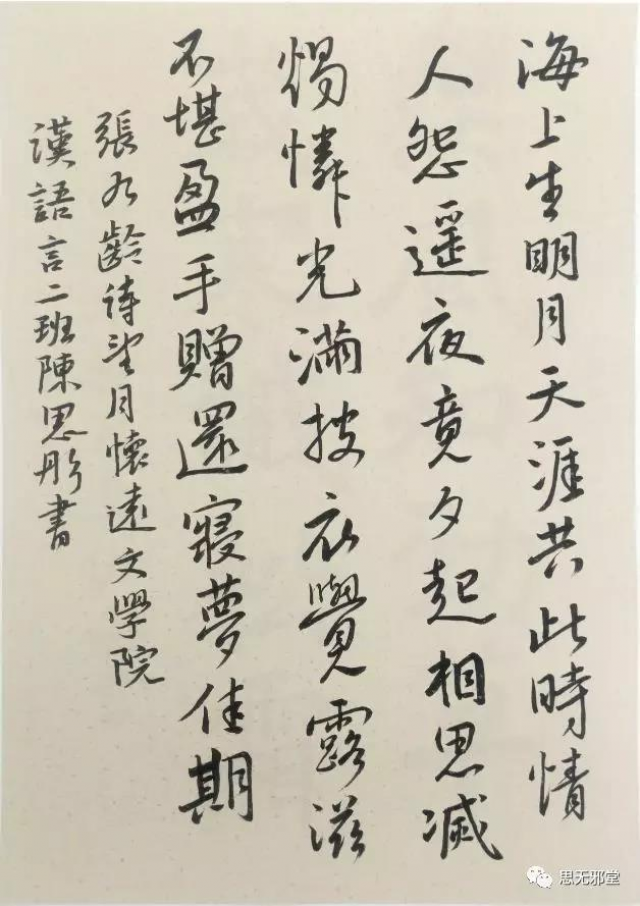 海上生明月天涯共此時情
人怨遥夜竟夕起相思滅
燭憐光滿披衣覺露滋
不堪盈手贈還寢夢佳期
張九齡詩望月懷遠文學院
漢語言二班陳思彤書
思无邪堂